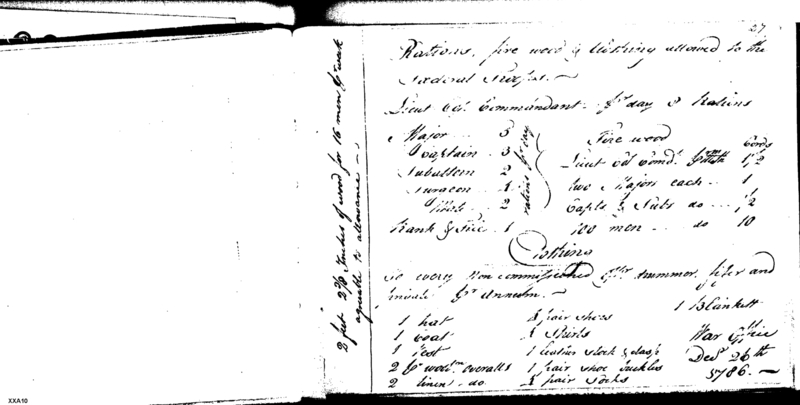 27
Rations, fire wood & Clothing allowed to the
Fœderal Troops. —
Lieut Col. Commandant pr. day 8 Rations
Major ... 5
Captain . 3
Subaltern 2
Surgeon ..
Mate .. 2
Rank & File . 1
rations pr. day
Fire wood
Cords
Lieut Col Comdt. pr. Month 1 1/2
two Majors each .. 1
Capts & Subs do ... 1/2
100 men .... do 10
Clothing
to every Non commissioned Offr. drummer, fifer and
private pr. Annum. —
1 hat
1 Coat
1 Vest
2 pr. overalls
2 linen . do.
4 pair shoes
4 Shirts
1 leather stock & clasp
1 pair shoe buckles
4 pair socks
1 Blankett
War Office
Decr. 26th
1786. —
2 feet 2 Inches of wood for 16 men pr. week
agreable to allowance —
XXA10